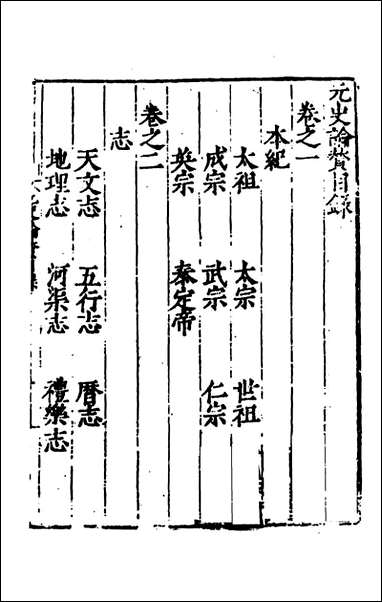 元史論贊目錄
卷之一
本紀
太祖 太宗 世祖
成宗 武宗 仁宗
英宗 泰定帝
卷之二
志
天文志 五行志 曆志
地理志 河渠志 禮樂志